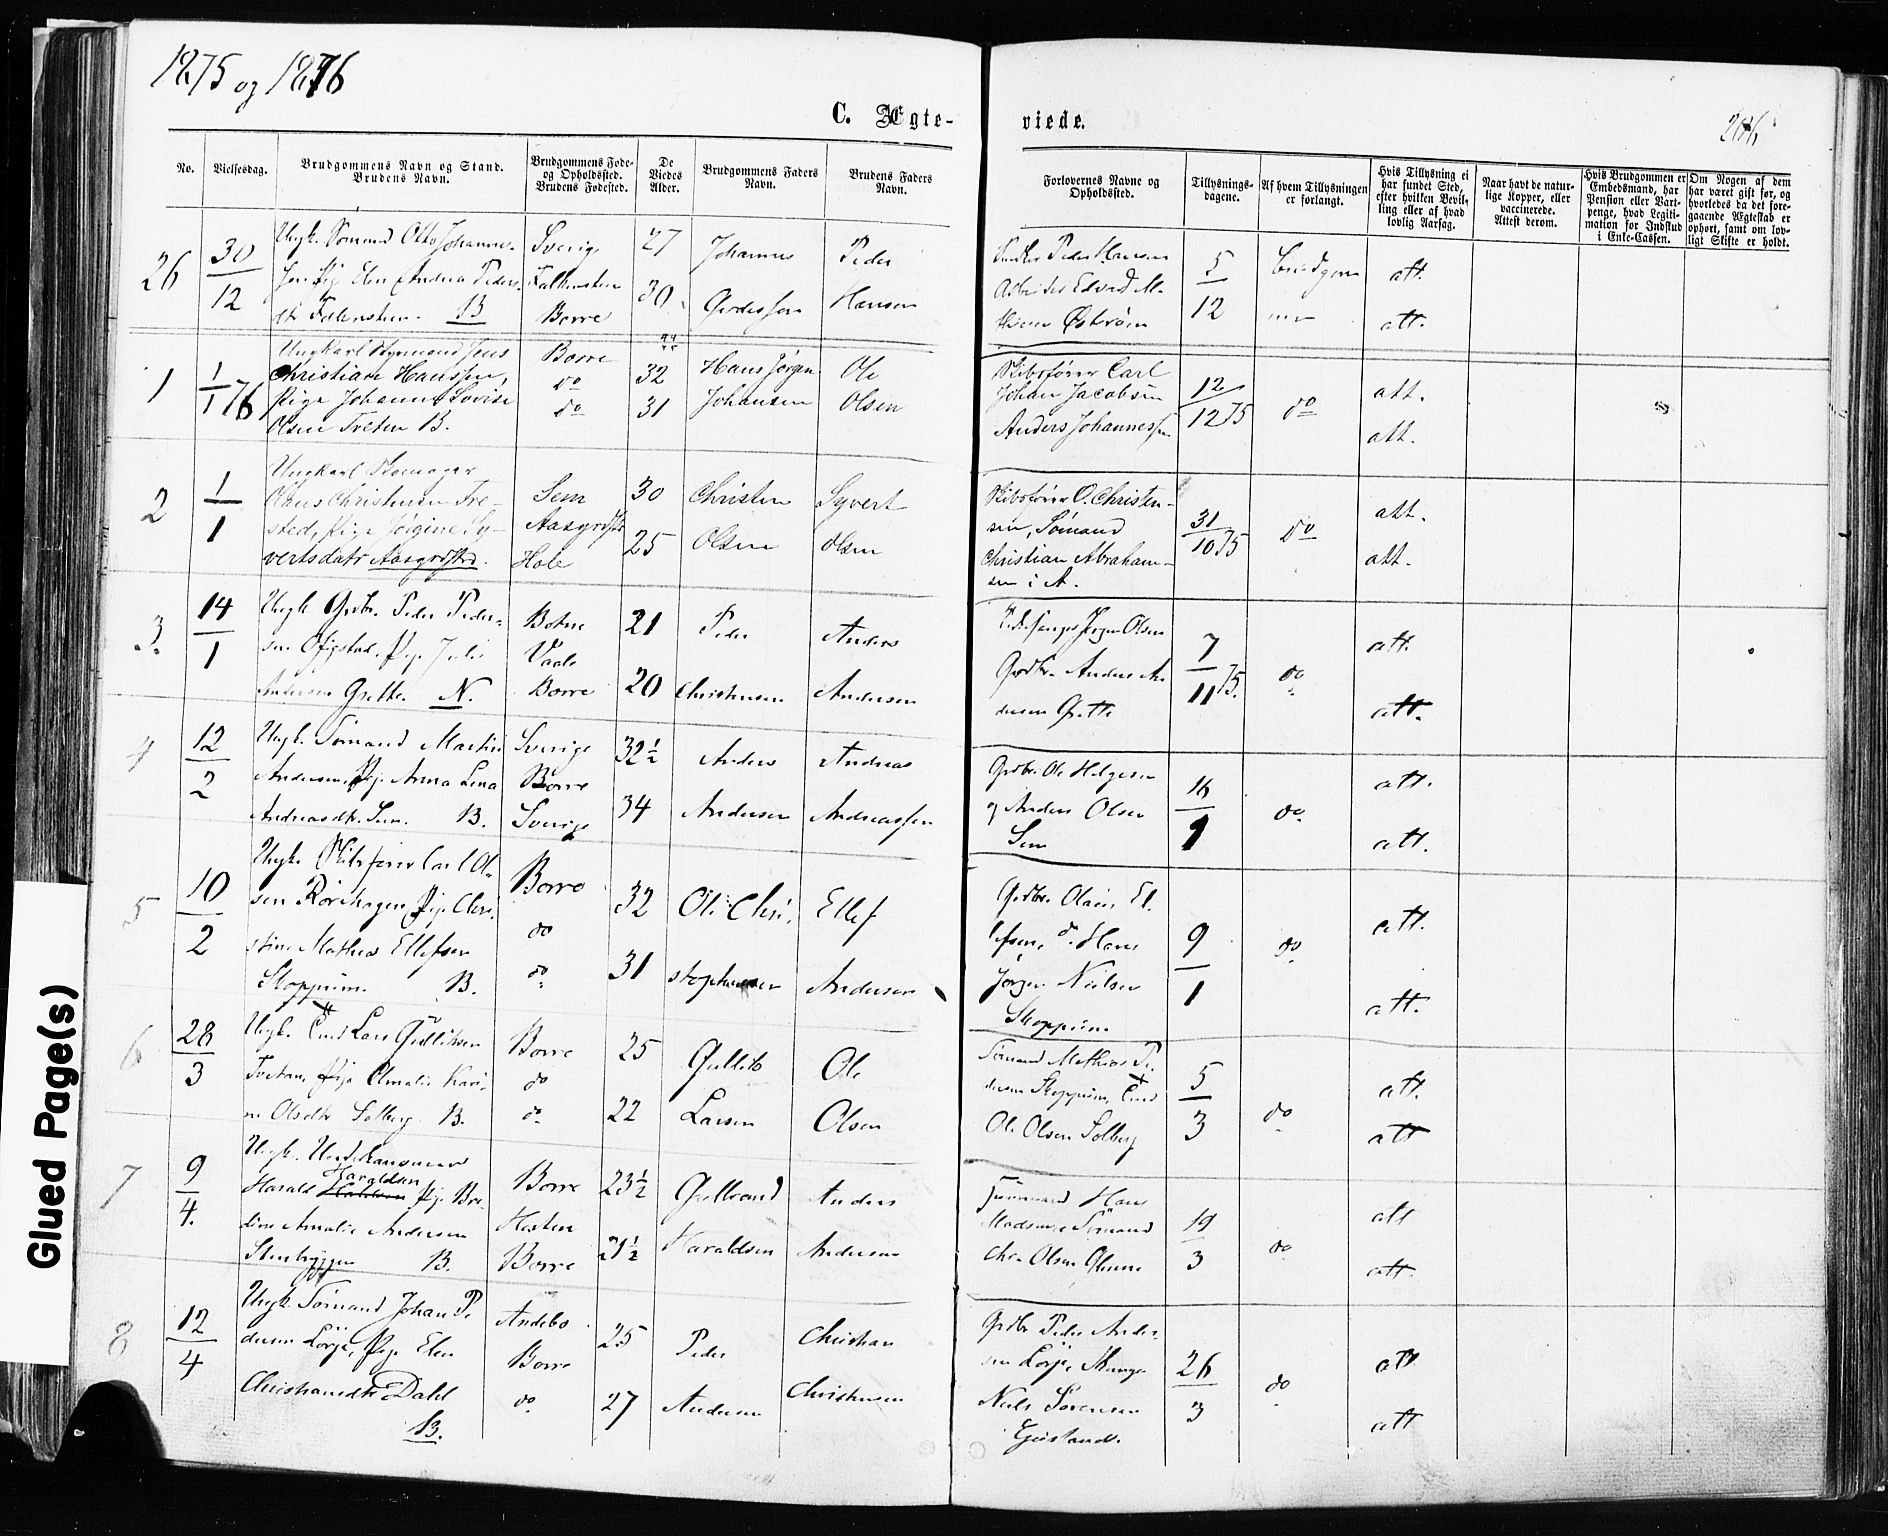 1875 og 1876
C. Ægte-
viede.
No.
Vielsesdag.
Brudgommens Navn og Stand.
Brudens Navn.
Brudgommens Føde-
og Opholdssted.
Brudens Fødested.
De
Viedes
Alder.
Brudgommens Faders
Navn.
Brudens Faders
Navn.
Forlovernes Navne og
Opholdssted.
Tillysnings-
dagene.
Af hvem Tillysningen
er forlangt.
Hvis Tillysning ei
har fundet Sted,
efter hvilken Bevil-
ling eller af hvad
lovlig Aarsag.
Naar havt de natur-
lige Kopper, eller
vaccinerede.
Attest derom.
Hvis Brudgommen er
Embedsmand, har
Pension eller Vart-
penge, hvad Legiti-
mation for Indskud
i Enke-Cassen.
Om Nogen af dem
har været gift før, og
hvorledes da det fore-
gaaende Ægteskab er
ophørt, samt om lov-
ligt Skifte er holdt.
26
30
12
Ungk. Sømand Otto Johannes-
sen Pig Elen Andrea Peders-
dtr Falkensten. B
Sverig
Falkensten
Borre
27
30
Johannes
Gordessen
Peder
Hansen
Peder Hansen
Arbeider Edvard M
5
12
Brudgom
men
att.
att.
1
1
1 76
Ungkarl Styrmand Jens
Christian Hanssen,
Pige Johanne Lovise
Olsen Treten B.
Borre
do
do
32
31
Hans Jørgen
Johansen
Ole
Olsen
Skibsfører Carl
Johan Jacobsen
Anders Johannessen
12
12 75
do
att.
att.
2
1
1
Ungkarl Skomager
Olaus Christensen Fre-
sted, Pige Jørgine Sy-
vertsdatr Aasgrdstrd.
Sem
Aasgrdstr
Hole
30
25
Christen
Olsen
Syvert
Olsen
Skibsfører O. Christen-
sen, Sømand
Christian Abraham-
sen i A.
31
10 75
do
att.
att.
3.
14
1
Ungk Grdbr. Peder Peder-
sen Pige Julie
Andersen Grette. N.
Botne
Vaale
Borre
21
20
Peder
Christensen
Anders
Andersen
Jørgen Olsen
Grdbr. Anders An
dersen Grette
7
11 75.
do
att.
att.
4
12
2
Ungk. Sømand Martin
Andersen, Pig. Anna Lena
Andreasdtr. Sem. B.
Sverige
Borre
Sverige
32½
34
Anders
Andersen
Andreas
Andreassen
Grdbr. Ole Helgesen
og Anders Olsen
Sem
16
1
do
att.
att.
5
10
2
Ungk. Skibsfører Carl Ol-
sen Rørehagen, Pige Chri-
stine Mathea Ellefsen
Skoppum. B.
Borre
do
do
32
31
Ole Chri-
stophersen
Ellef
Andersen
Grdbr. Olaus El-
lefsen, do Hans
Jørgen Nielsen
Skoppum
9
1
do
att.
att.
6
28
3
Ungk. Lars Gulliksen
Tvetan, Pige Amalie Kari-
ne Olsdtr Solberg. B.
Borre
do
do
25
22
Gullik
Larsen
Ole
Olsen
Sømand Mathias Pe-
dersen Skoppum,
Ole Olsen Solberg
5
3
do
att.
att
7
9
4.
Ungk.
Harald Haraldsen Pige Bre-
dine Amalie Andersen
Stenbyggen B.
Borre
Horten
Borre
23½
21½
Gulbrand
Haraldsen
Anders
Andersen
Tømmermand Hans
Madsen, Sømand
Chr. Olsen Glenne
19
3
do
att
att.
8
12
4
Ungk. Sømand Johan Pe-
dersen Lørje, Pige Elen
Christiansdtr Dahl
B.
Andebo
Borre
do
25
27
Peder
Andersen
Christian
Christensen
Grdbr. Peder Ander-
sen Lørje,
Niels Sørensen
26
3
do
att
att
Glued Page(s)